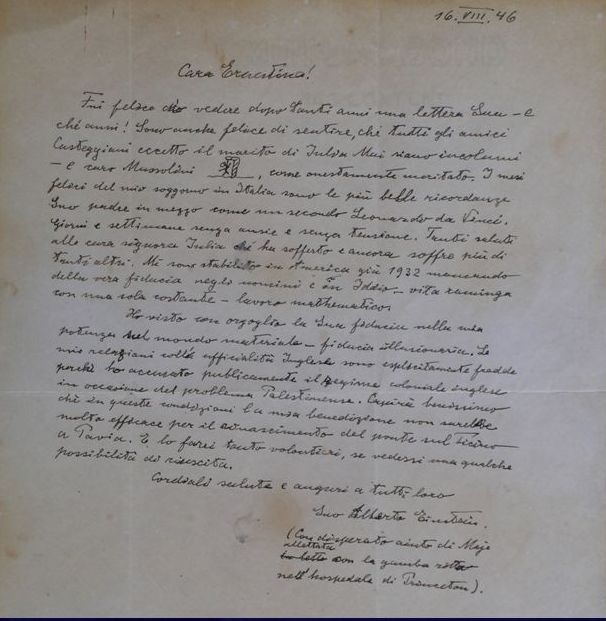 16.VIII.46
Cara Ernestina!
Fui felice di vedere dopo tanti anni una lettera Sua – e
ché anni! Sono anche felice di sentire, chè tutti gli amici
Casteggiani eccetto il marito di Julia Mai siano incolumi
– e caro Mussolini , come onestamente meritato. I mesi
felici del mio soggiorno in Italia sono le più belle ricordanze
Suo padre in mezzo come un secondo Leonardo da Vinci.
Giorni e settimane senza ansie e senza tensione. Tanti saluti
alla cara signora Julia che ha sofferto e ancora soffre più di
tanti altri. Mi sono stabilito in America già 1932 mancando
della vera fiducia negli uomini e in Iddio – vita raminga
con una sola costante – lavoro mathematico.
Ho visto con orgoglio la Sua fiducia nella mia
potenza nel mondo materiale – fiducia illusionaria. Le
mie relazioni colle officialità Inglese sono esplicitamente fredde
perchè ho accusato publicamente il regime coloniale inglese
in occasione del problema Palestinense. Capirà benissimo
chè in queste condizioni la mia benedizione non sarebbe
molto efficace per il rinascimento del ponte sul Ticino
a Pavia. E lo farei tanto volontieri, se vedessi una qualche
possibilità di riuscita.
Cordiali salute e auguri a tutti loro
Suo Alberto Einstein.
(Con disperato aiuto di Maja
allettata
con la gamba rotta
nell'hospedale di Princeton).